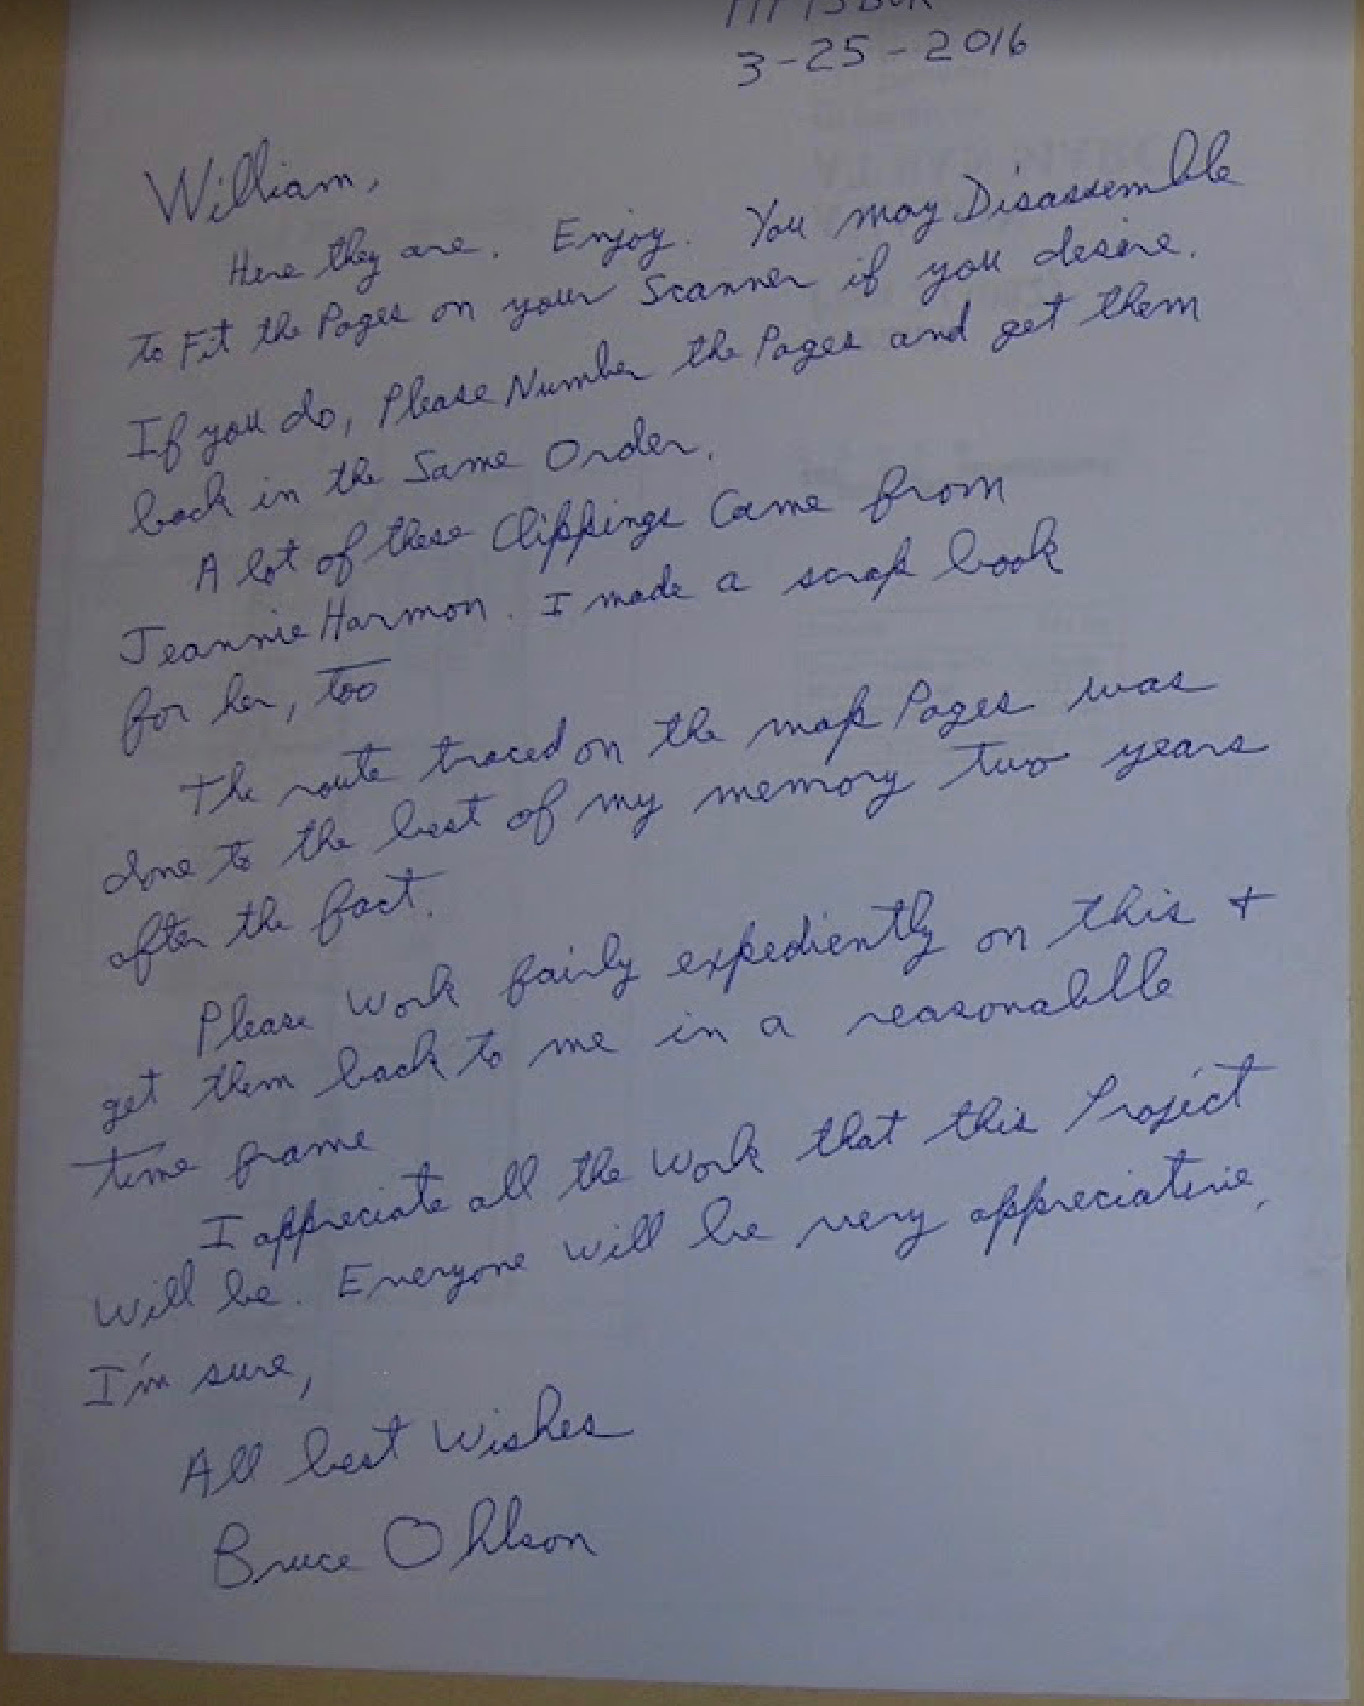 3-25-2016
William,
Here they are. Enjoy. You may Disassemble
to Fit the Pages on your Scanner if you desire.
If you do, Please Number the Pages and get them
back in the Same Order.
A lot of these Clippings Came from
Jeannie Harmon. I made a scrap book
for her, too
The route traced on the map Pages was
done to the best of my memory two years
after the fact.
Please Work fairly expediently on this +
get them back to me in a reasonablle
time frame
I appreciate all the Work that this Project
will be. Everyone will be very appreciative,
I'm sure,
All best Wishes
Bruce Ohlson